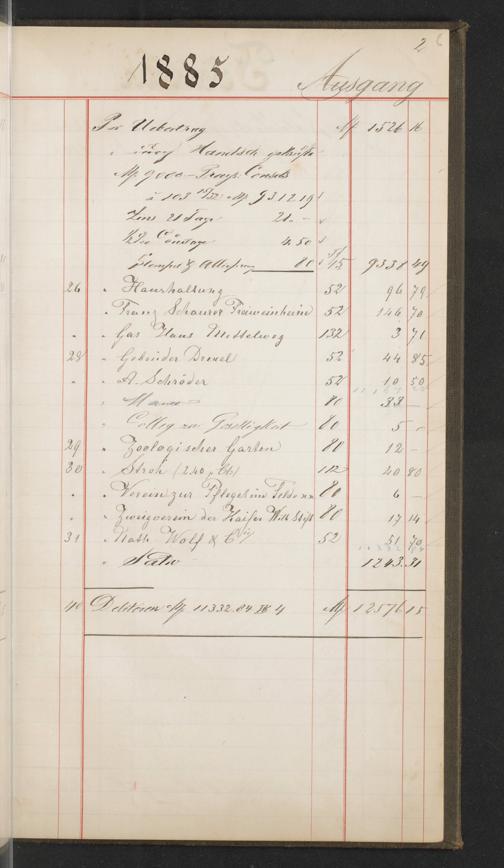 2
1885 Ausgang
Per Uebertrag M 1526 16
M 9000 - Preuss. Consols
à 103 M 9312 19
Zins 21 Tage 21. -
Courtage 4.50
Stempel & 80 9338 49
26 " Haushaltung 52 96 79
" Franz Schaurer Freiweinheim 52 146 70
" " Gas Haus Mettelweg 132 3 71
28 " Gebrüder Drexel 52 44 85
" " A. Schröder 52 10 50
" Mama 80 33 -
" Colleg zur Geselligkeit 80 5 -
29 " Zoologischer Garten 80 12 -
30 " Stroh (240 112 20 80
" " Verein zur Pflege im Felde 80 6 -
" " Zweigverein der Kaiser Wilh Stift 80 17 14
31 " Nath. Wolf & C 52 51 70
" Saldo 1243.31
40 Debitoren M 11332.84 M 12576 15